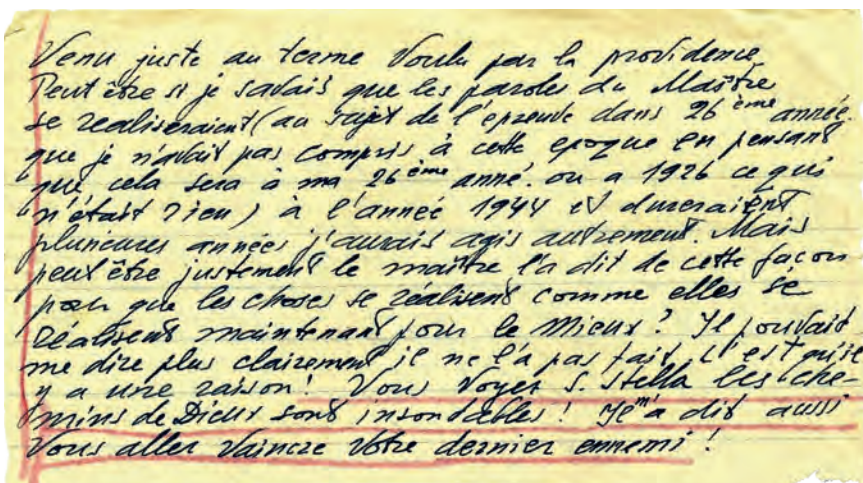 Venu juste au terme voulu par la providence
Peut être si je savais que les paroles du Maître
se realiseraient (au sujet de l'epreuve dans 26 ème année.
que je n'avait pas compris à cette epoque en pensant
que cela sera à ma 26 ème anné. ou a 1926 ce qui
n'était rien) à l'année 1944 et dureraient
plurieures années j'aurais agis autrement. Mais
peut être justement le maître l'a dit de cette façon
pour que les choses se réalisent comme elles se
réalisent maintenant pour le mieux? Il pouvait
me dire plus clairement il ne l'a pas fait, c'est qu'il
y a une raison! Vous voyez S. Stella les che-
mins de Dieux sont insondables! Il m'a dit aussi
Vous aller vaincre votre dernier ennemi!